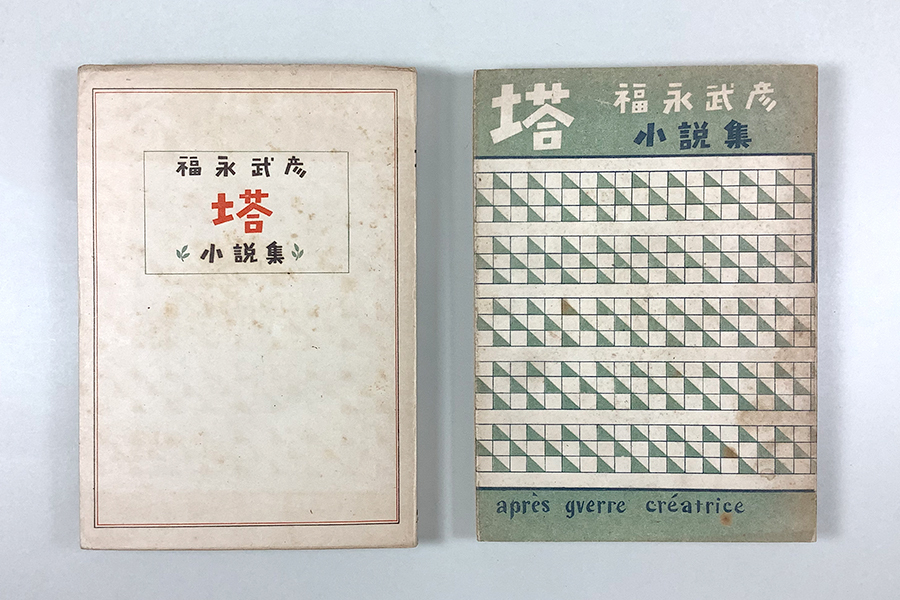 福永武彦
塔
小説集
塔 福永武彦
小説集
après gverre créatrice